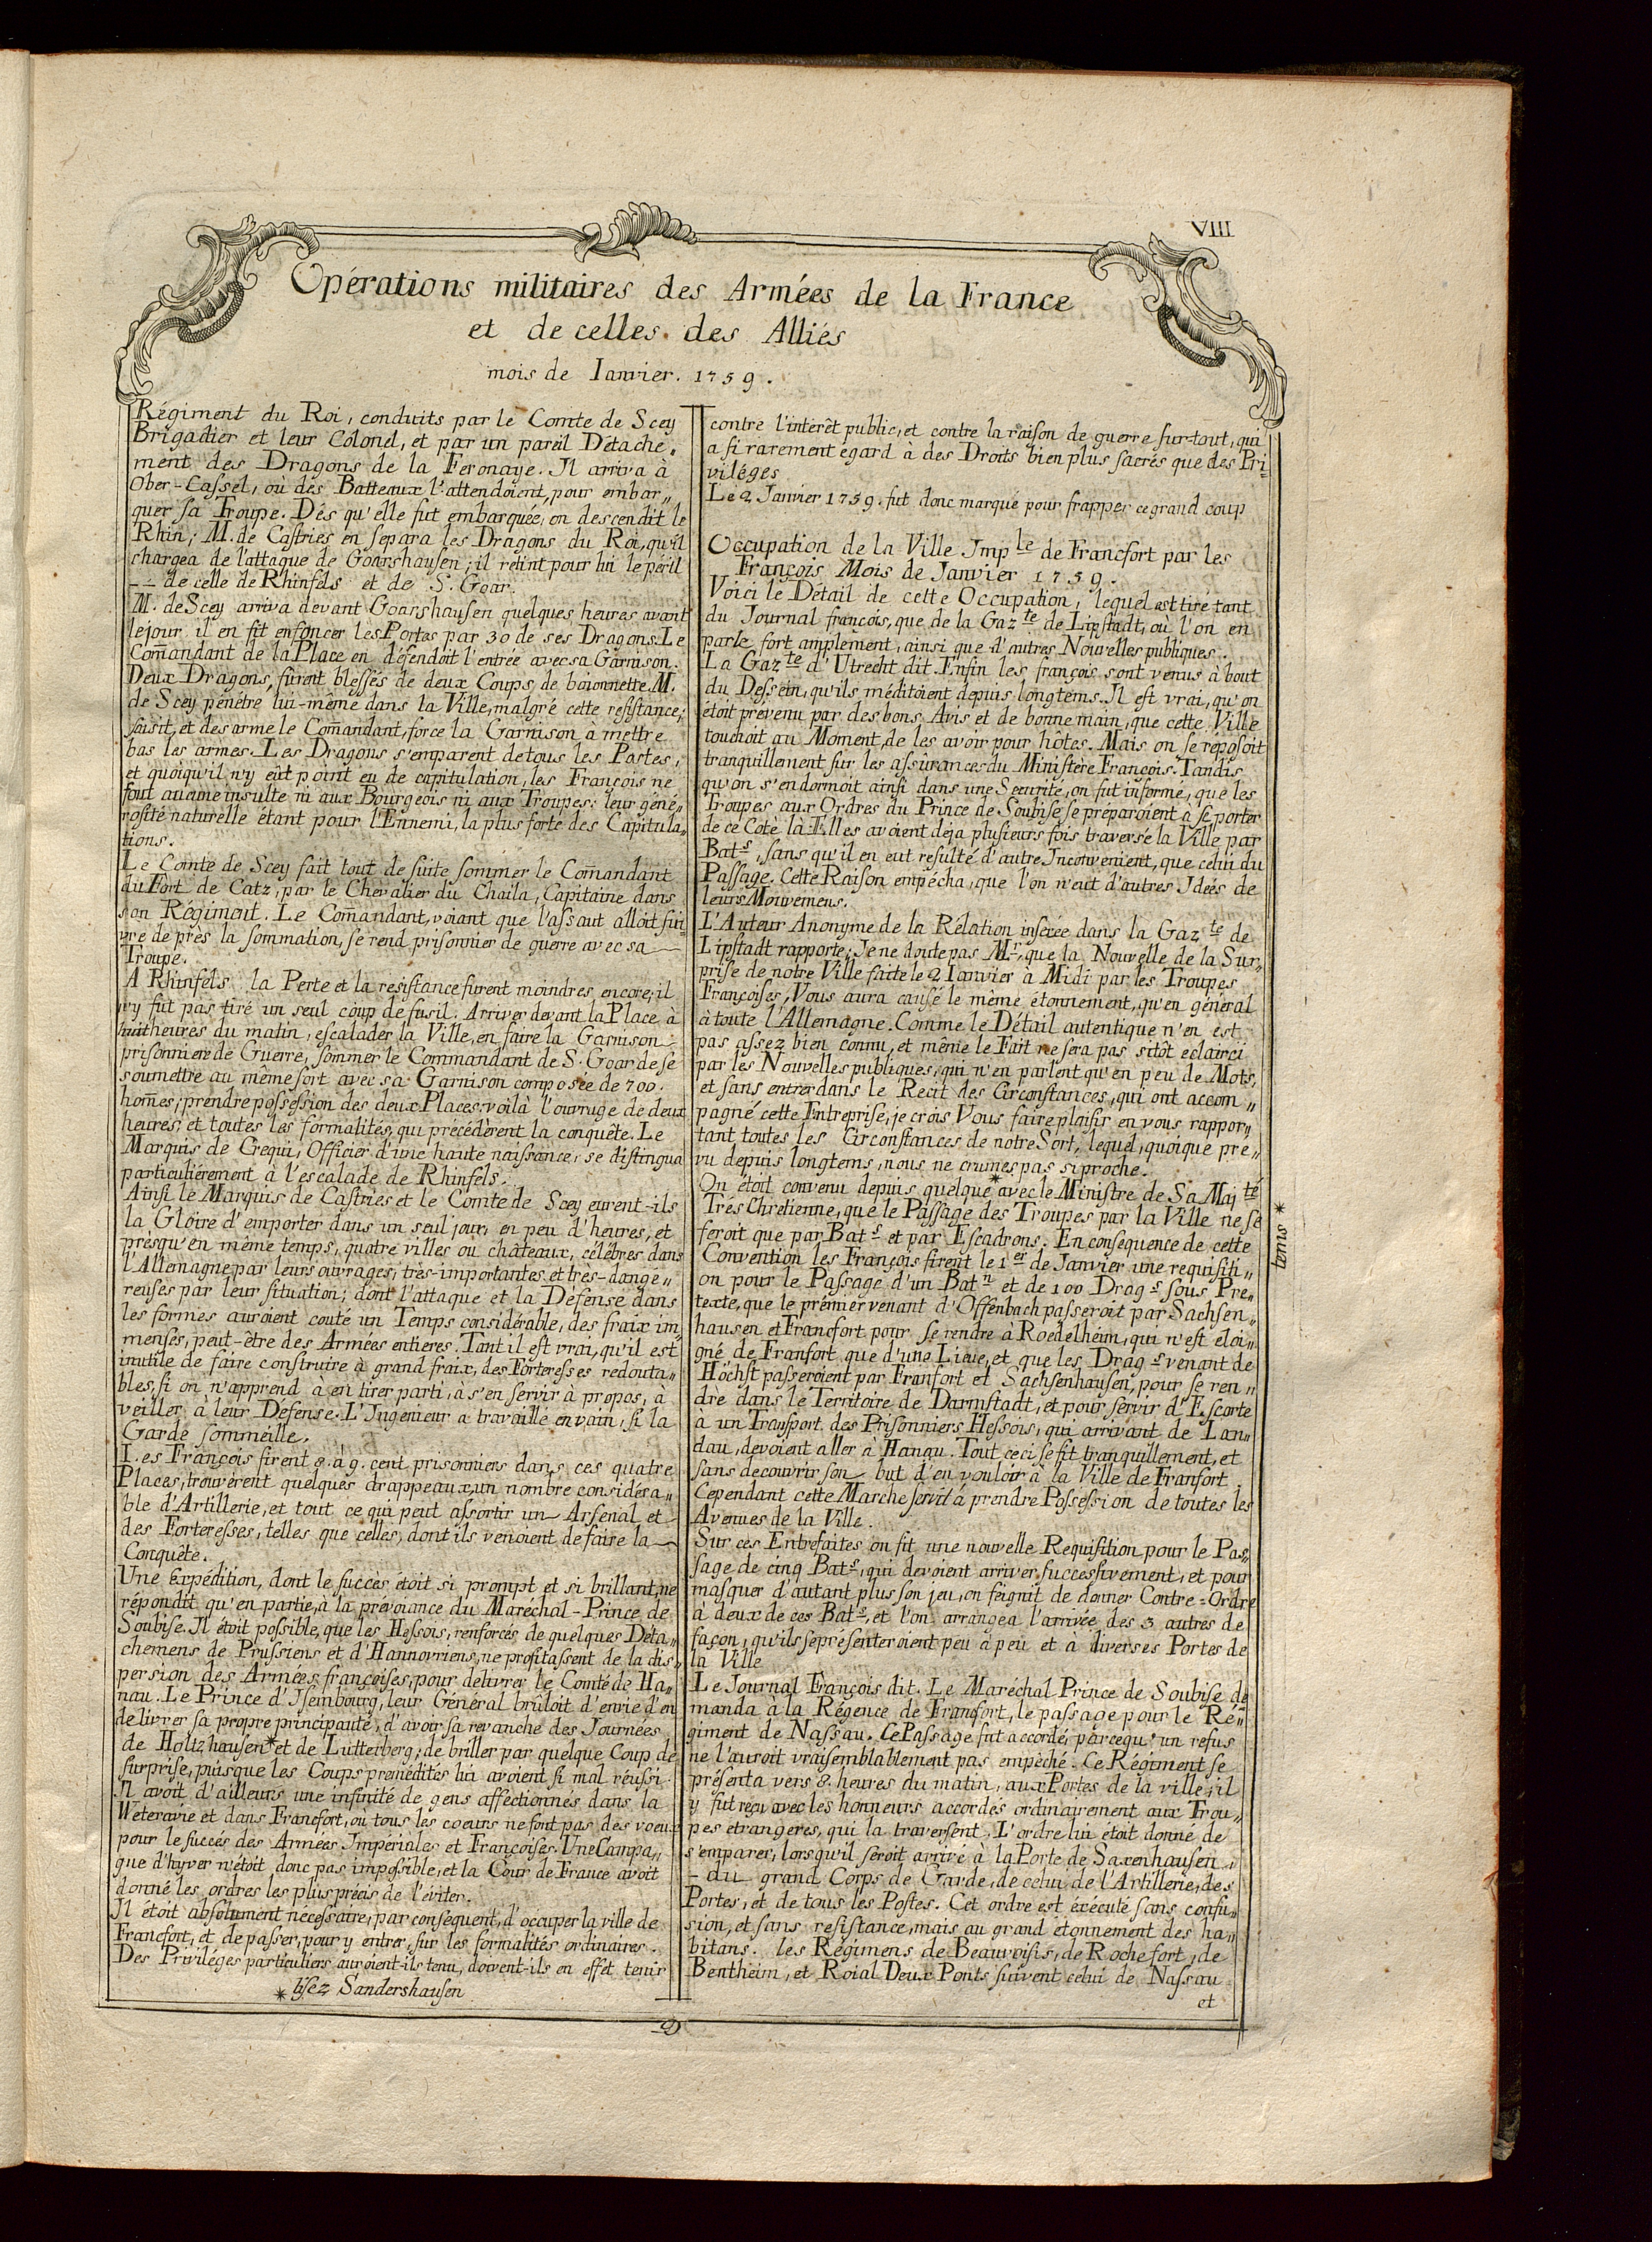 VIII
Opérations militaires des Armées de la France
et de celles des Alliés
mois de Ianvier. 1759.
Régiment du Roi, conduits par le Comte de Scey
Brigadier et leur Colonel, et par un pareil Détache„
ment des Dragons de la Feronaye. Jl arriva à
Ober-Cassel, où des Batteaux l'attendoient, pour embar„
quer sa Troupe. Dés qu'elle fut embarquée, on descendit le
Rhin; M. de Castries en separa les Dragons du Roi, qu'il
chargea de l'attaque de Goarshausen; il retint pour lui le péril
-- de celle de Rhinfels et de S. Goar.
M. de Scey arriva devant Goarshausen quelques heures avant
le jour il en fit enfoncer les Portes par 30 de ses Dragons. Le
Com̄andant de la Place en défendoit l'entrée avec sa Garnison.
Deux Dragons, furent blessés de deux Coups de baionnette. M.
de Scey pénétre lui-même dans la Ville, malgré cette resistance;
saisit, et desarme le Com̄andant, force la Garnison à mettre
bas les armes. Les Dragons s'emparent de tous les Postes,
et quoiqu'il n'y eût point eu de capitulation, les François ne
font aucune insulte ni aux Bourgeois ni aux Troupes: leur géné„
rosité naturelle étant pour l'Ennemi, la plus forte des Capitula„
tions.
Le Comte de Scey fait tout de suite sommer le Com̄andant
du Fort de Catz, par le Chevalier du Chaila, Capitaine dans
son Régiment. Le Com̄andant, voiant que l'assaut alloit sui„
vre de près la sommation, se rend prisonnier de guerre avec sa
Troupe.
A Rhinfels la Perte et la resistance furent moindres encore; il
n'y fut pas tiré un seul coup de fusil. Arriver devant la Place à
huit heures du matin, escalader la Ville, en faire la Garnison
prisonniere de Guerre, sommer le Commandant de S. Goar de se
soumettre au même sort avec sa Garnison composée de 700.
hom̄es; prendre possession des deux Places: voilà l'ouvrage de deux
heures, et toutes les formalités, qui précédèrent la conquête. Le
Marquis de Crequi, Officier d'une haute naissance, se distingua
particuliérement à l'escalade de Rhinfels.
Ainsi le Marquis de Castries et le Comte de Scey eurent-ils
la Gloire d'emporter dans un seul jour, en peu d'heures, et
presqu'en même temps, quatre villes ou châteaux, célébres dans
l'Allemagne par leurs ouvrages, très-importantes et très-dange„
reuses par leur situation; dont l'attaque et la Défense dans
les formes auroient couté un Temps considérable, des fraix im„
menses, peut-être des Armées entieres. Tant il est vrai, qu'il est
inutile de faire construire à grand fraix, des Forteresses redouta„
bles, si on n'apprend à en tirer parti, à s'en servir à propos, à
veiller à leur Defense. L'Jngenieur a travaillé en vain, si la
Garde sommeille.
Les François firent 8. à 9. cent prisonniers dans ces quatre
Places, trouvèrent quelques drappeaux, un nombre considéra„
ble d'Artillerie, et tout ce qui peut assortir un Arsenal et
des Forteresses, telles que celles, dont ils venoient de faire la
Conquête.
Une Expédition, dont le succès étoit si prompt et si brillant, ne
répondit qu'en partie, à la prévoiance du Maréchal-Prince de
Soubise. Jl étoit possible, que les Hessois, renforcés de quelques Déta„
chemens de Prussiens et d'Hannovriens, ne profitassent de la dis„
persion des Armées françoises, pour delivrer le Comté de Ha„
nau. Le Prince d'Jsembourg, leur Général brûloit d'envie d'en
delivrer sa propre principauté, d'avoir sa revanche des Journées
de Holtzhausen* et de Lutterberg; de briller par quelque Coup de
surprise, puisque les Coups premédités lui avoient si mal réussi.
Jl avoit d'ailleurs une infinité de gens affectionnés dans la
Weteravie et dans Francfort, où tous les coeurs ne font pas des voeux
pour le succés des Armées Jmpériales et Françoises. Une Campa„
que d'hyver n'étoit donc pas impossible, et la Cour de France avoit
donné les ordres les plus précis de l'éviter.
Jl étoit absolument nécessaire, par conséquent, d'occuper la ville de
Francfort, et de passer, pour y entrer, sur les formalités ordinaires.
Des Priviléges particuliers auroient-ils tenu, doivent-ils en effèt tenir
* lisez Sandershausen
contre l'intérêt public, et contre la raison de guerre sur-tout, qui
a si rarement egard à des Droits bien plus sacrés que des Pri„
viléges
Le 2 Janvier 1759. fut donc marqué pour frapper ce grand coup
Occupation de la Ville Jmp le de Francfort par les
François Mois de Janvier 1759.
Voici le Détail de cette Occupation, lequel est tiré tant
du Journal françois, que de la Gaz te de Lipstadt, où l'on en
parle fort amplement, ainsi que d'autres Nouvelles publiques.
La Gaz te d'Utrecht dit. Enfin les françois sont venus à bout
du Dessein, qu'ils méditoient depuis longtems. Jl est vrai, qu'on
étoit prévenu par des bons Avis et de bonne main, que cette Ville
touchoit au Moment, de les avoir pour hôtes. Mais on se réposoit
tranquillement sur les assûrances du Ministère François. Tandis
qu'on s'endormoit ainsi dans une Securité, on fut informé, que les
Troupes aux Ordres du Prince de Soubise se préparoient à se porter
de ce Coté là. Elles avoient déja plusieurs fois traversé la Ville par
Bat s, sans qu'il en eut resulté d'autre Jnconvenient, que celui du
Passage. Cette Raison empêcha, que l'on n'eût d'autres Jdées de
leurs Mouvemens.
L'Auteur Anonyme de la Rélation insérée dans la Gaz te de
Lipstadt rapporte; Je ne doute pas Mr, que la Nouvelle de la Sur„
prise de notre Ville faite le 2 Ianvier à Midi par les Troupes
Françoises, Vous aura causé le même étonnement, qu'en général
à toute l'Allemagne. Comme le Détail autentique n'en est
pas assez bien connu, et même le Fait ne sera pas sitôt eclairci
par les Nouvelles publiques, qui n'en parlent qu'en peu de Mots,
et sans entrer dans le Recit des Circonstances, qui ont accom„
pagné cette Entreprise, je crois Vous faire plaisir en vous rappor„
tant toutes les Circonstances de notre Sort, lequel, quoique pré„
vu depuis longtems, nous ne crumes pas si proche.
On étoit convenu depuis quelque * avec le Ministre de Sa Maj té
Trés Chretienne, que le Passage des Troupes par la Ville ne se
feroit que par Bat s et par Escadrons. En conséquence de cette
Convention les François firent le 1er de Janvier une requisiti„
on pour le Passage d'un Bat n et de 100 Drag s sous Pre„
texte, que le prémier venant d'Offenbach passeroit par Sachsen„
hausen et Francfort pour se rendre à Roedelheim, qui n'est éloi„
gné de Franfort que d'une Lieue, et que les Drag s venant de
Höchst passeroient par Franfort et Sachsenhausen, pour se ren„
dre dans le Territoire de Darmstadt, et pour servir d'Escorte
a un Transport des Prisonniers Hessois, qui arrivant de Lan„
dau, devoient aller à Hanau. Tout ceci se fit tranquillement, et
sans decouvrir son but d'en vouloir à la Ville de Franfort.
Cependant cette Marche servit à prendre Possession de toutes les
Avenues de la Ville.
Sur ces Entrefaites on fit une nouvelle Requisition pour le Pas„
sage de cinq Bat s, qui devoient arriver successivement, et pour
masquer d'autant plus son jeu, on feignit de donner Contre-Ordre
à deux de ces Bat s, et l'on arrangea l'arrivée des 3 autres de
façon, qu'ils se présenteroient peu à peu et à diverses Portes de
la Ville
Le Journal François dit. Le Maréchal Prince de Soubise de
manda à la Régence de Francfort, le passage pour le Ré„
giment de Nassau. Ce Passage fut accordé, parcequ'un refus
ne l'auroit vraisemblablement pas empêché. Ce Régiment se
présenta vers 8. heures du matin, aux Portes de la ville; il
y fut reçu avec les honneurs accordés ordinairement aux Trou„
pes étrangeres, qui la traversent. L'ordre lui étoit donné de
s'emparer, lorsqu'il seroit arrivé à la Porte de Saxenhausen,
- du grand Corps de Garde, de celui de l'Artillerie, des
Portes, et de tous les Postes. Cet ordre est éxécuté sans confu„
sion, et sans resistance, mais au grand etonnement des ha„
bitans. les Régimens de Beauvoisis, de Rochefort, de
Bentheim, et Roial Deux Ponts suivent celui de Nassau
et
tems *
D